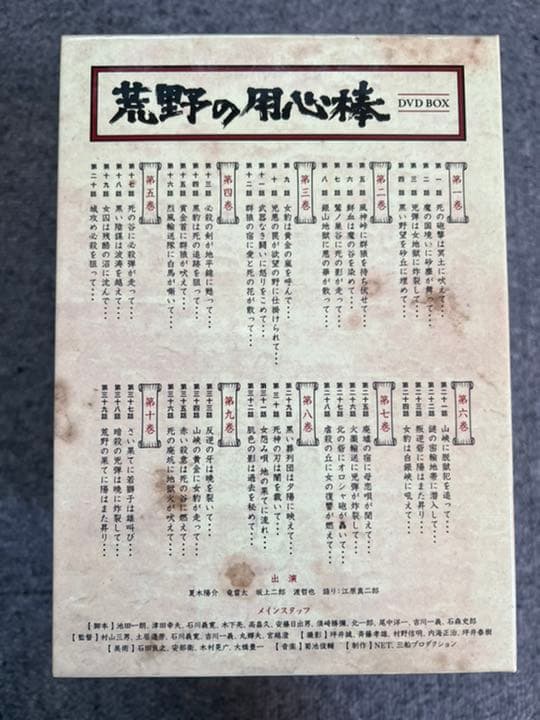 荒野の用心棒
DVD BOX
第一巻
第一話 死の砲撃は冥土に吠えて・・・
第二話 魔の国境いに砂塵が舞って・・・
第三話 兇弾は女地獄に炸裂して・・・
第四話 黒い野望を砂丘に埋めて・・・
第二巻
第五話 風雪の峠に群狼を待ち伏せて・・・
第六話 鮮血は魔の谷を染めて・・・
第七話 鷲ノ巣谷に死の影が走って・・・
第八話 銀山地獄に悪の華が散って・・・
第三巻
第九話 女豹は黄金の嵐を呼んで・・・
第十話 兇悪の罠が欲望の野に仕掛けられて・・・
第十一話 武器なき闘いに怒りをこめて・・・
第十二話 群狼の宿に愛と死の花が散って・・・
第四巻
第十三話 必殺の剣が地平線に甦って・・・
第十四話 黒豹は死の追跡を狙って・・・
第十五話 黄金首に群狼が吠えて・・・
第十六話 烈風輸送隊に白馬が嘶いて・・・
第五巻
第十七話 死の谷に必殺弾が走って・・・
第十八話 黒い陰謀は波濤を越えて・・・
第十九話 女囚は残酷の沼に沈んで・・・
第二十話 城攻め必殺を狙って・・・
第六巻
第二十一話 山峡に脱獄犯を追って・・・
第二十二話 謎の密輸地帯に潜入して・・・
第二十三話 叛逆砦に陽はまた昇り・・・
第二十四話 女豹は白銀峡に吼えて・・・
第七巻
第二十五話 廃墟の宿に母恋唄が聞えて・・・
第二十六話 火薬輸送に兇弾が炸裂して・・・
第二十七話 北の砦にオロシャ砲が轟いて・・・
第二十八話 虐殺の丘に女の復讐が燃えて・・・
第八巻
第二十九話 黒い葬列団は夕陽に映えて・・・
第三十話 死神の刃は闇を裁いて・・・
第三十一話 女怨み唄、地の果てに流れ・・・
第三十二話 肌色の影は過去を秘めて・・・
第九巻
第三十三話 反逆の牙は暁を裂いて・・・
第三十四話 山峡の黄金に女豹が走って・・・
第三十五話 赤い殺意は死の谷に燃えて・・・
第三十六話 死の廃坑に地獄火が吠えて・・・
第十巻
第三十七話 さい果てに若獅子は雄叫び・・・
第三十八話 暗殺の兇弾は暁に炸裂して・・・
第三十九話 荒野の果てに陽はまた昇り・・・
出演
夏木陽介 竜雷太 坂上二郎 渡哲也 語り:江原真二郎
メインスタッフ
【脚本】池田一朗、津田幸夫、石川義寛、木下亮、高畠久、安藤日出男、須崎勝彌、北一郎、尾中洋一、吉川一義、石森史郎
【監督】村山三男、土居通芳、石川義寛、吉川一義、丸輝夫、宮越澄 【撮影】坪井誠、斉藤孝雄、村野信明、内海正治、坪井春樹
【美術】石田良之、安部衛、木村晃広、大橋豊一 【音楽】菊池俊輔 【制作】NET、三船プロダクション